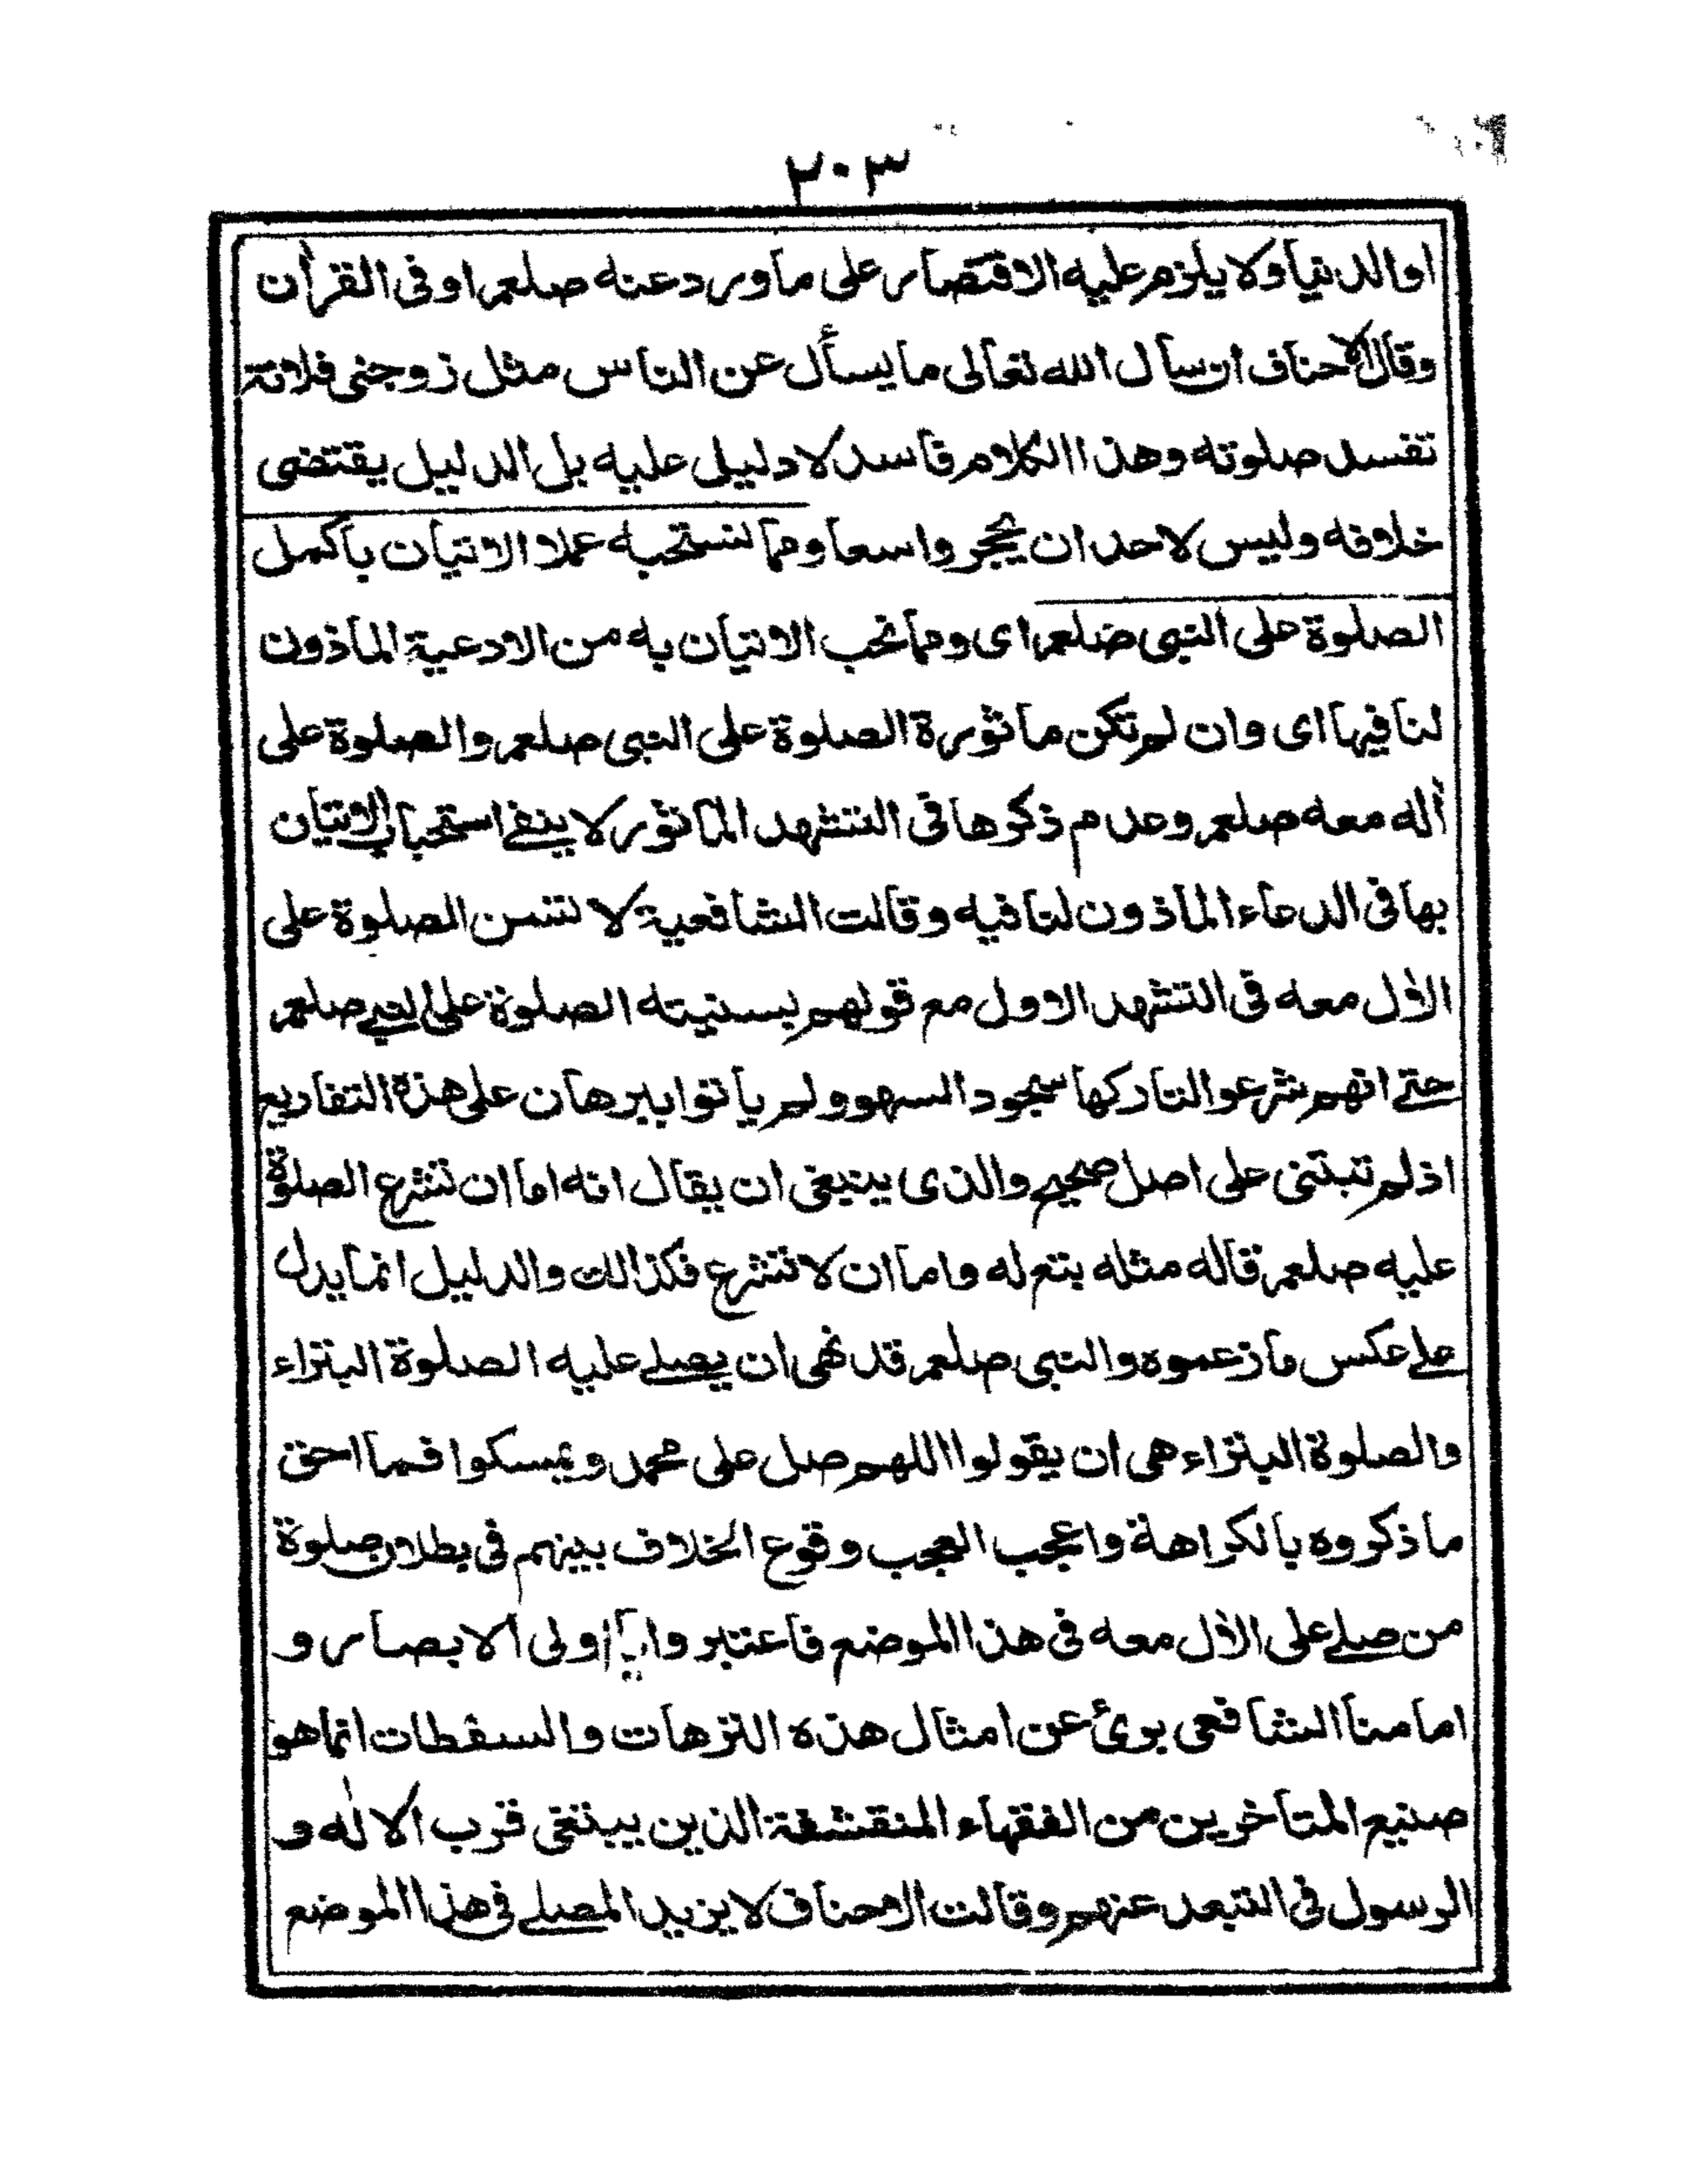 ٢٠٣
او الدنيا ولا يلزم عليه الاقتصار على ما ورد عنه صلعم او فى القرأن
وقال الاحناف ان سأل الله تعالى ما يسأل عن الناس مثل زوجنى فلانة
تفسد صلوته وهذا الكلام فاسد لا دليلى عليه بل الدليل يقتضى
خلافه وليس لاحد ان يحجر واسعا ومما نستحبه عملا الاتيان باكمل
الصلوة على النبى صلعم اى ومما نحب الاتيان به من الادعية الماذون
لنا فيها اى وان لم تكن ماثورة الصلوة على النبى صلعم والصلوة على
أله معه صلعم وعدم ذكرها فى التشهد الماثور لا ينفے استحباب الاتيان
بها فى الدعاء الماذون لنا فيه وقالت الشافعية لا تسن الصلوة على
الأل معه فى التشهد الاول مع قولهم بسنيته الصلوة على النبے صلعم
حتے انهم شرعوا لتاركها سجود السهو ولم يأتوا ببرهان على هذه التفاريع
اذ لم تبتنى على اصل صحيح والذى ينبغى ان يقال انه اما ان تشرع الصلوة
عليه صلعم فاله مثله يتع له واما ان لا تشرع فكذالك والدليل انما يدل
علے عكس ما زعموه والنبى صلعم قد نهى ان يصلے عليه الصلوة البتراء
والصلوة البتراء هى ان يقولوا اللهم صل على محمد ويمسكوا فما احق
ما ذكروه بالكراهة واعجب العجب وقوع الخلاف بينهم فى بطلان صلوة
من صلے على الأل معه فى هذا الموضع فاعتبروا يا اولى الابصار و
امامنا الشافعى برئ عن امثال هذه الترهات والسقطات انما هو
صنيع المتأخرين من الفقهاء المتقشفة الذين يبتغى قرب الاله و
الرسول فى التبعد عنهم وقالت الاحناف لا يزيد المصلے فى هذا الموضع